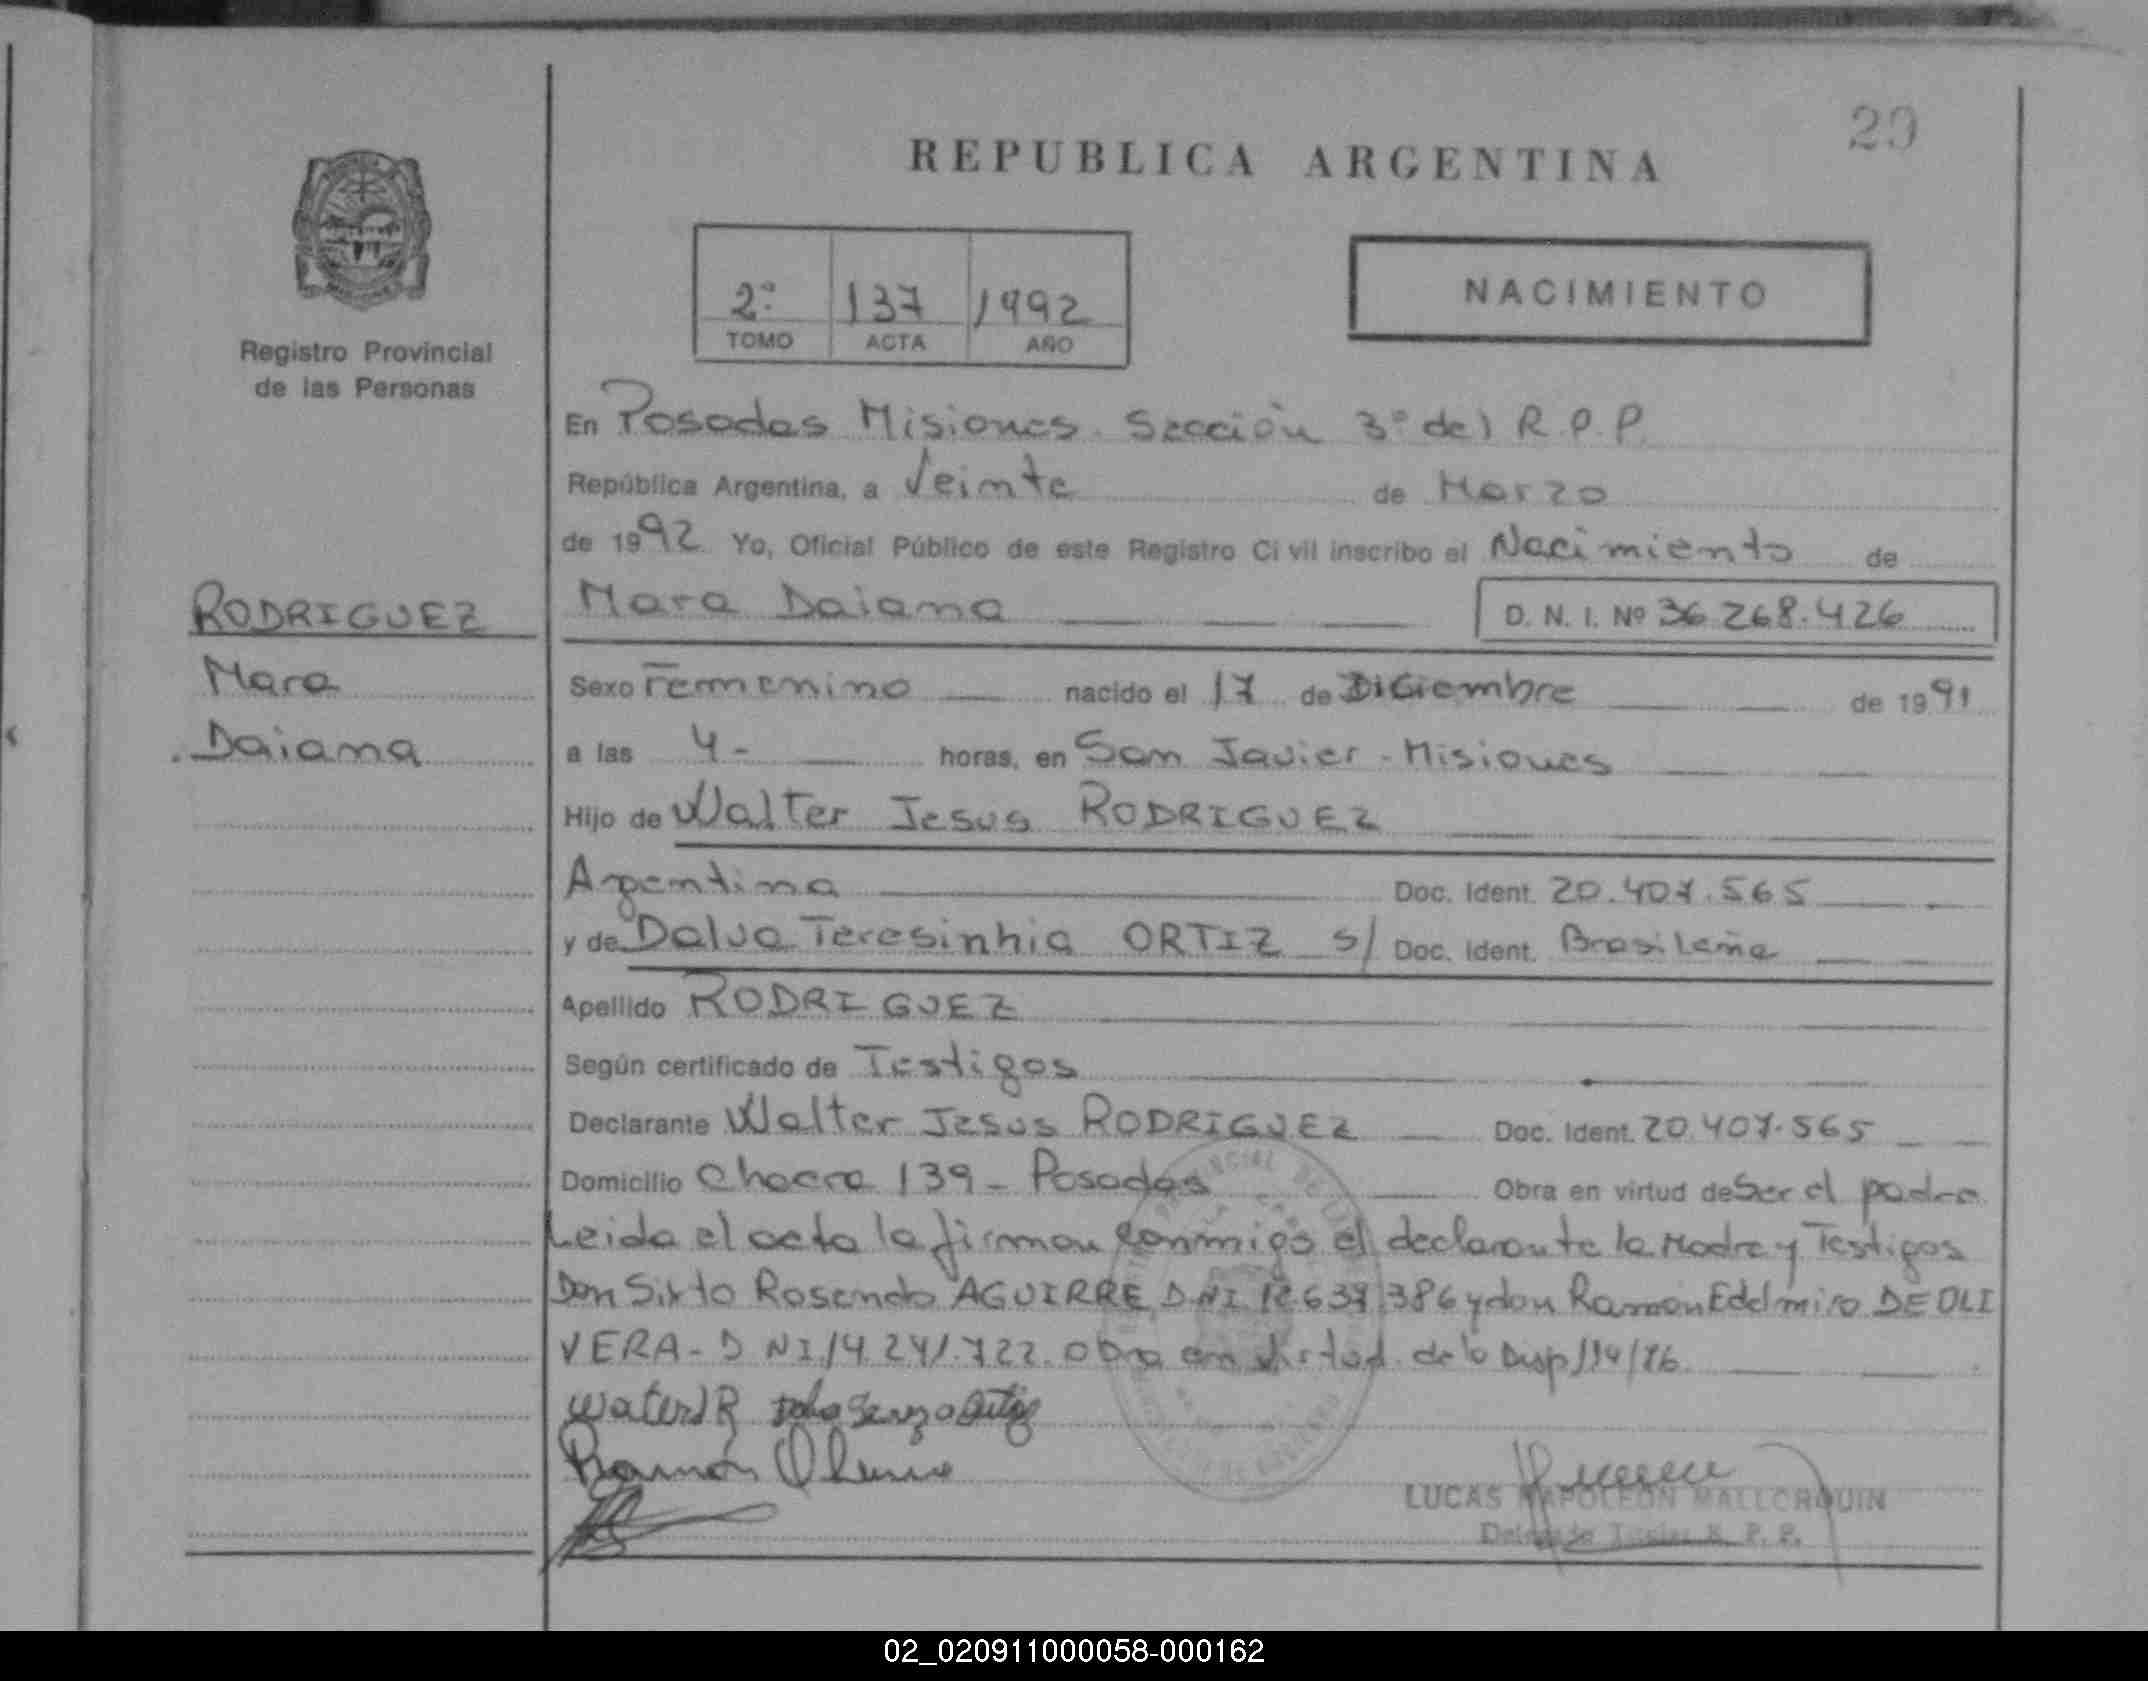 29
REPUBLICA ARGENTINA
2º 137 1992
TOMO ACTA AÑO
NACIMIENTO
Registro Provincial
de las Personas
En Posadas Misiones. Sección 3º del R.P.P.
República Argentina, a Veinte de Marzo
de 1992 Yo, Oficial Público de este Registro Civil inscribo el Nacimiento de
RODRIGUEZ
Mara
Daiana
Mara Daiana D. N. I. Nº 36.268.426
Sexo Femenino nacido el 17 de Diciembre de 1991
a las 4- horas, en San Javier - Misiones
Hijo de Walter Jesus RODRIGUEZ
Argentina Doc. Ident. 20.407.565
y de Dalva Teresinhia ORTIZ s/ Doc. Ident. Brasileña
Apellido RODRIGUEZ
Según certificado de Testigos
Declarante Walter Jesus RODRIGUEZ Doc. Ident. 20.407.565
Domicilio Chacra 139 - Posadas Obra en virtud de Ser el padre
Leida el acta la firman conmigo el declarante la Madre y Testigos
Don Sixto Rosendo AGUIRRE DNI 12.637.386 y don Ramon Edelmiro DE OLI
VERA - DNI 14.241.722. obra en virtud de la Disp
Ramón
LUCAS NAPOLEON MALLORQUIN
Delegado R. P. P.
02_020911000058-000162